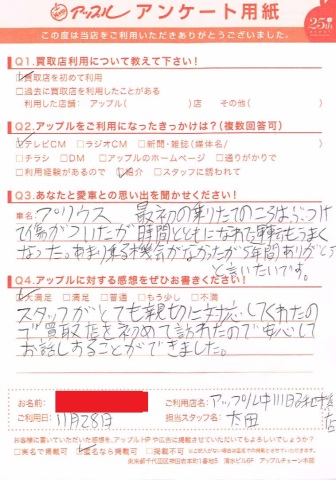 アップル アンケート用紙
25th
この度は当店をご利用いただきありがとうございました。
Q1.買取店利用について教えて下さい!
☑買取店を初めて利用
□過去に買取店を利用したことがある
利用した店舗: アップル( )店 その他( )
Q2.アップルをご利用になったきっかけは?(複数回答可)
☑テレビCM □ラジオCM □新聞・雑誌(媒体名/ )
□チラシ □DM □アップルのホームページ □通りがかりで
□利用経験があるので ☑紹介 □スタッフに誘われて
Q3.あなたと愛車との思い出を聞かせください!
車名: プリウス 最初の乗りたてのころはぶつけ
て傷がついたが時間とともになれて運転もうまく
なった。あまり乗る機会がなかったが5年間ありがとう
と言いたいです。
Q4.アップルに対する感想をぜひお書きください!
☑大満足 □満足 □普通 □もう少し □不満
スタッフがとても親切に対応してくれたの
で買取店を初めて訪れたので安心して
お話しすることができました。
お名前:
ご利用店名: アップル中川昭和橋店
ご利用日: 11月28日
担当スタッフ名: 太田
お客様に書いていただいた感想を、アップルHPや広告に掲載させていただいてもよろしいでしょうか?
□実名で掲載可 ☑匿名なら掲載可 □掲載不可